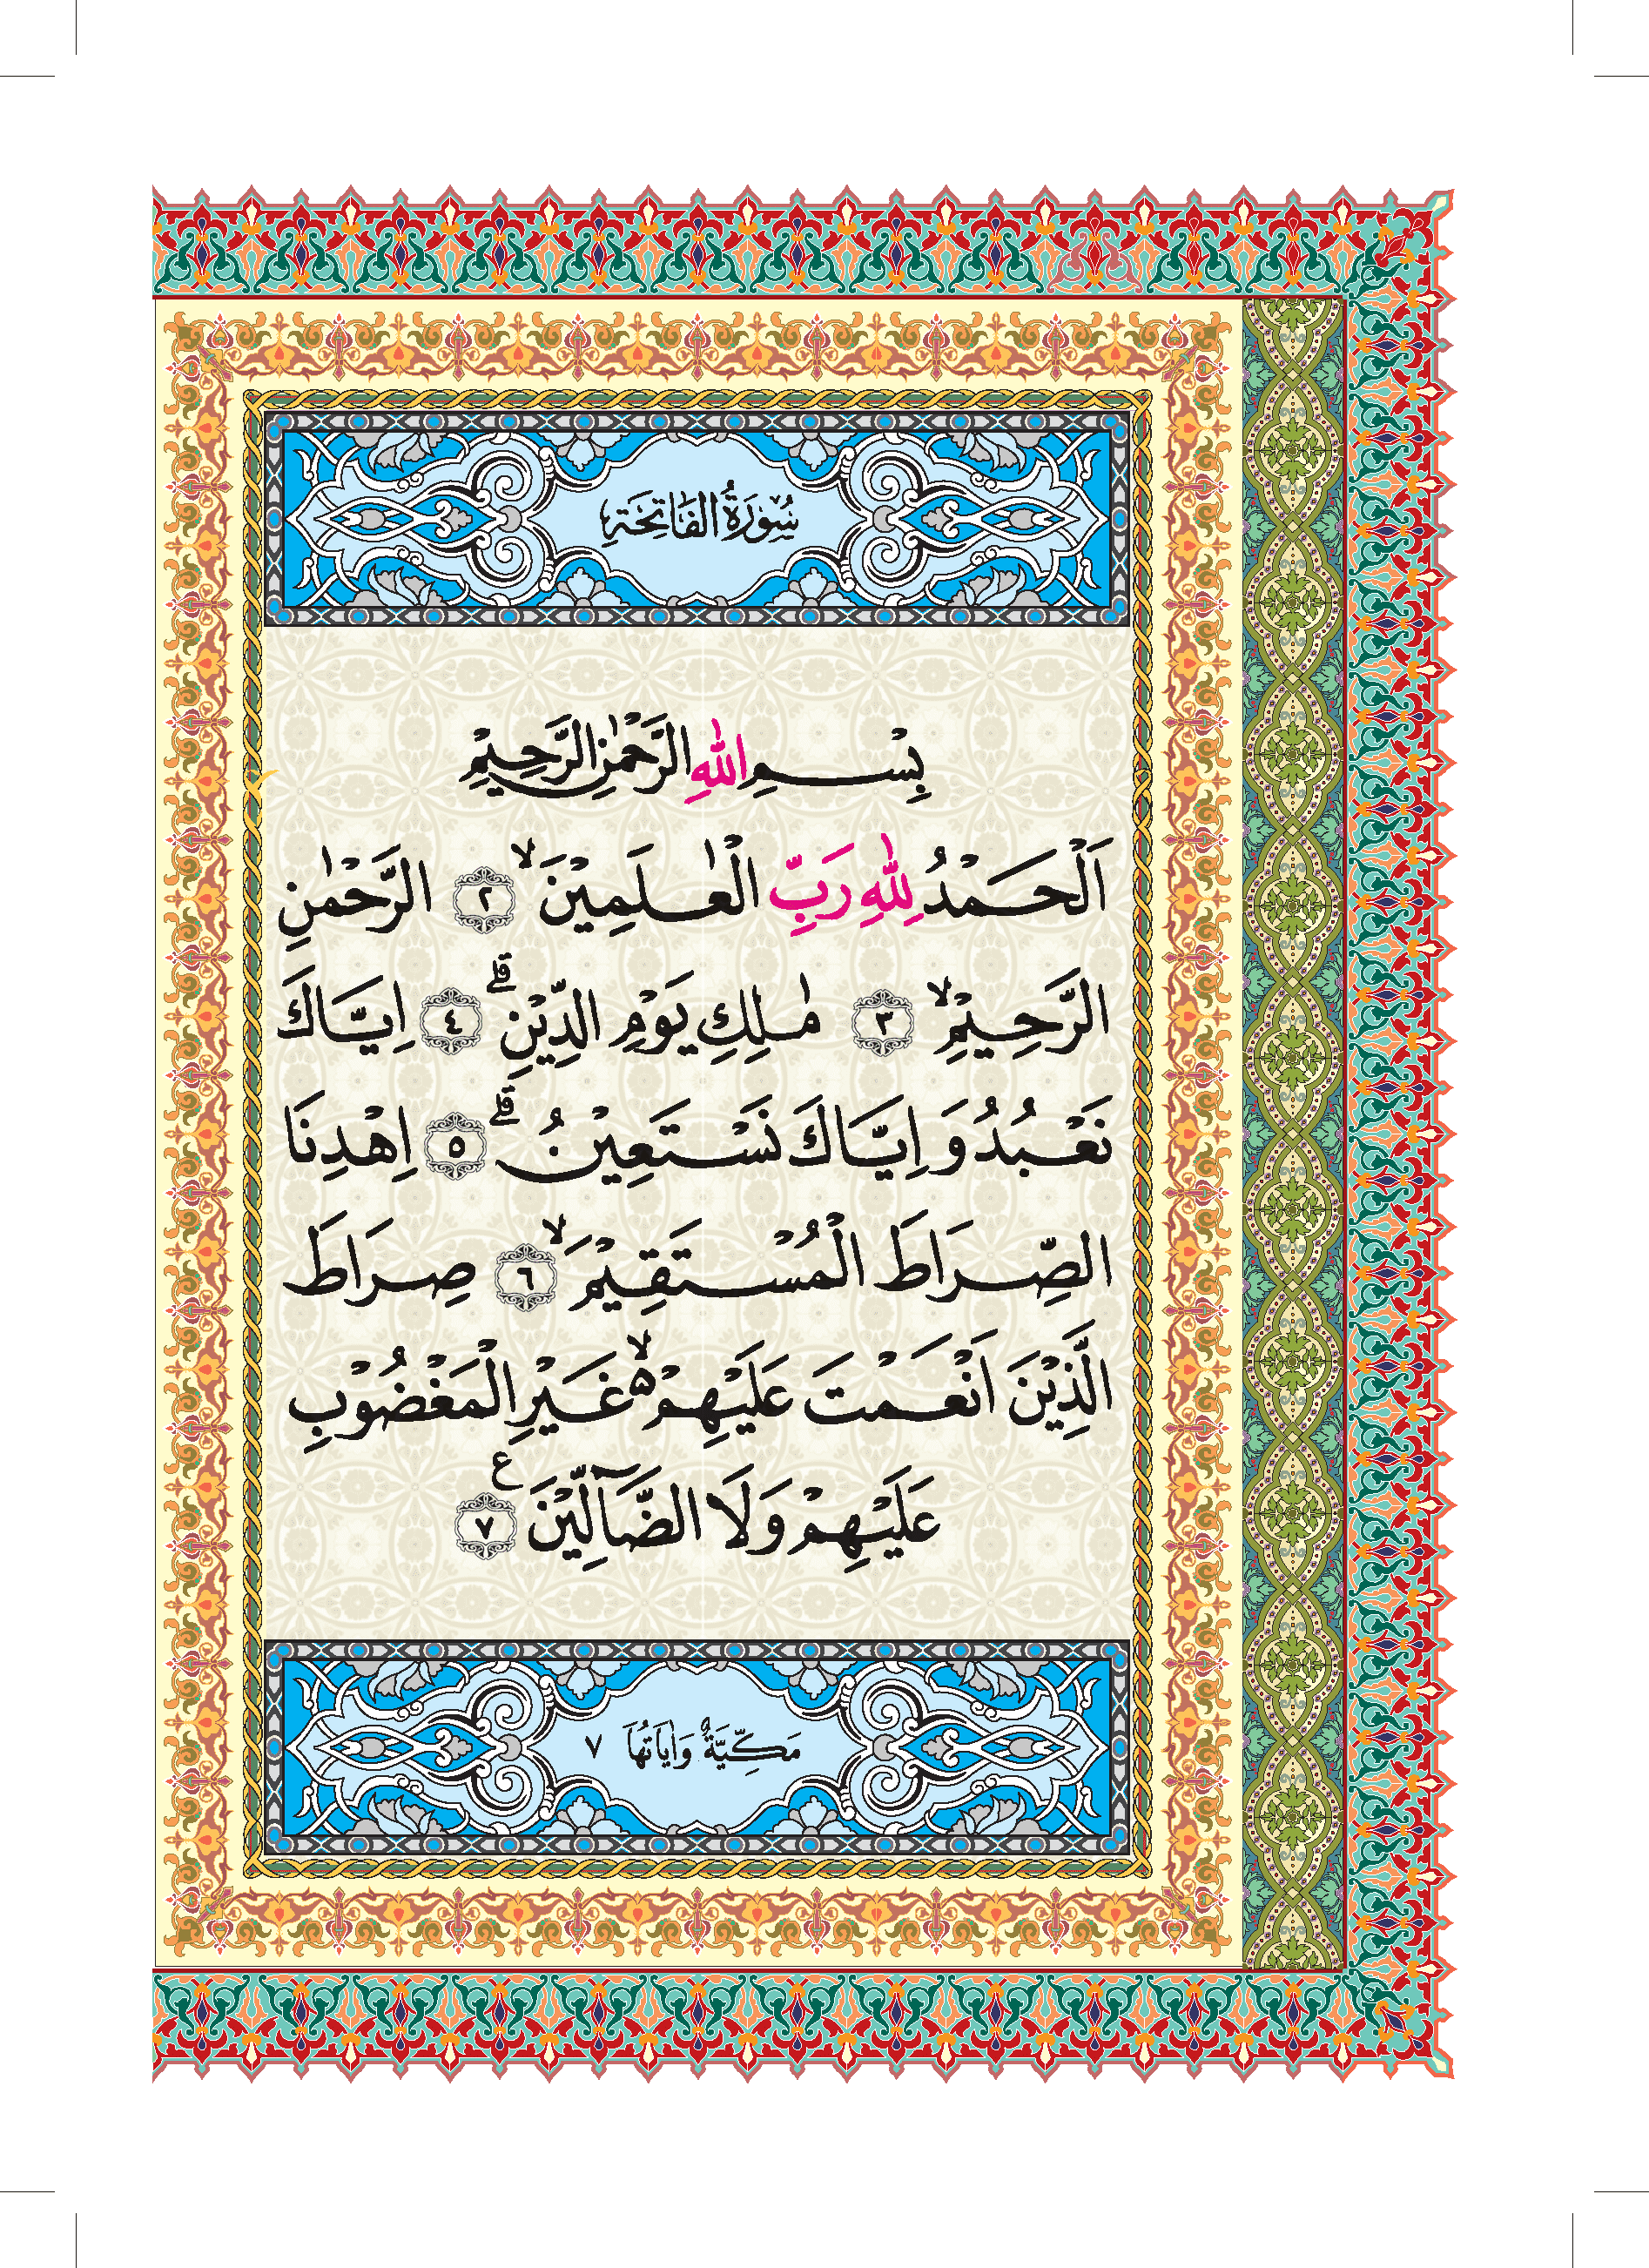 سُوْرَةُ الْفَاتِحَةِ
بِسْمِ اللّٰهِ الرَّحْمٰنِ الرَّحِيْمِ
اَلْحَمْدُ لِلّٰهِ رَبِّ الْعٰلَمِيْنَ ۙ ٢ الرَّحْمٰنِ
الرَّحِيْمِ ۙ ٣ مٰلِكِ يَوْمِ الدِّيْنِ ۗ ٤ اِيَّاكَ
نَعْبُدُ وَ اِيَّاكَ نَسْتَعِيْنُ ۗ ٥ اِهْدِنَا
الصِّرَاطَ الْمُسْتَقِيْمَ ۙ ٦ صِرَاطَ
الَّذِيْنَ اَنْعَمْتَ عَلَيْهِمْ ۵ ۙ غَيْرِ الْمَغْضُوْبِ
عَلَيْهِمْ وَلَا الضَّآلِّيْنَ ع ٧
مَكِّيَّةٌ وَاٰيَاتُهَا ٧